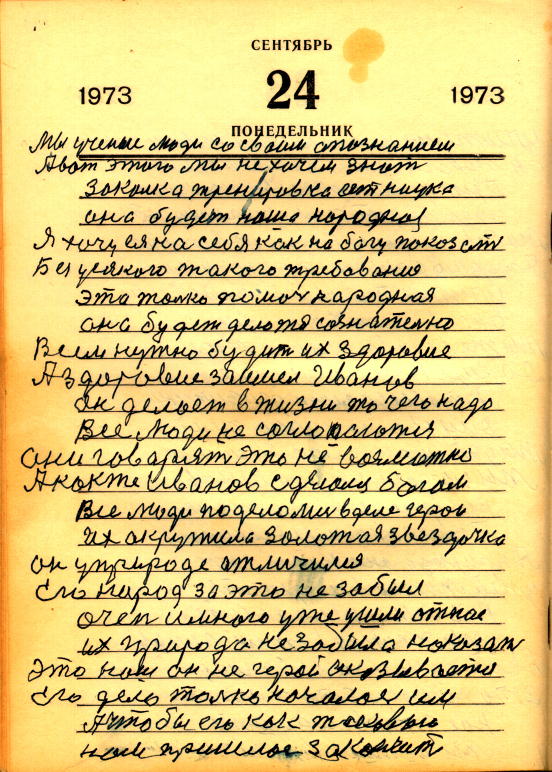 СЕНТЯБРЬ
1973 24 1973
ПОНЕДЕЛЬНИК
Мы ученые люди со своим опознанием
А вот этого мы не хочем знат
Закалка тренировка ест наука
она будет наша народная
Я хочу ся на себя как на богу показат
Без усякого такого требования
эта толко помоч народная
она будет делотся сознателно
Всем нужно будит их здоровие
А здоровие заимел Иванов
он делает в жизни то чего надо
Все люди не соглослотся
они говарят это не возмотно
А как же Иванов сделолся богом
Все люди поделоми в деле герои
их окружила золотая звездочка
он у природе отличился
Его народ за это не забыл
очен и много уже ушли от нас
их природа не забыла показат
Это нам он не герой оказывается
Его дело толко началос им
А чтобы его как
нам пришлос закончит